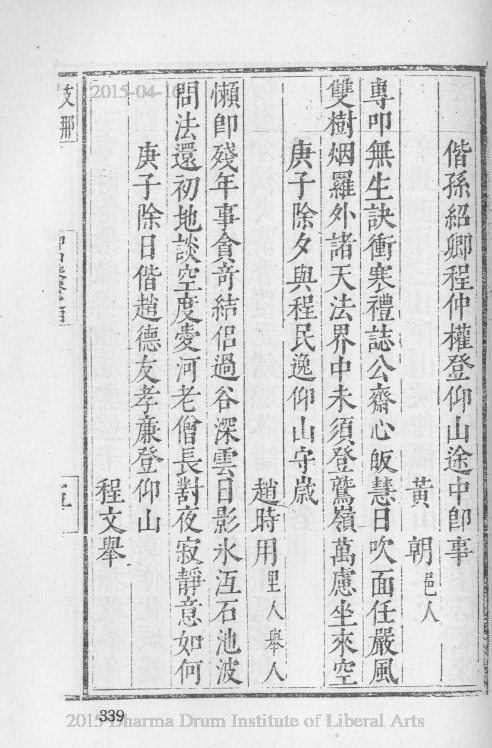 偕孫紹卿程仲權登仰山途中卽事
黃　朝邑人
專叩無生訣衝寒禮誌公齋心皈慧日吹面任嚴風
雙樹烟羅外諸天法界中未須登鷲嶺萬慮坐來空
庚子除夕與程民逸仰山守歲
趙時用里人舉人
懶卽殘年事貪竒結侶過谷深雲日影氷冱石池波
問法還初地談空度愛河老僧長對夜寂靜意如何
庚子除日偕趙德友孝亷登仰山
程文舉
支那
五
339
2015-04-16
2015 Dharma Drum Institute of Liberal Arts